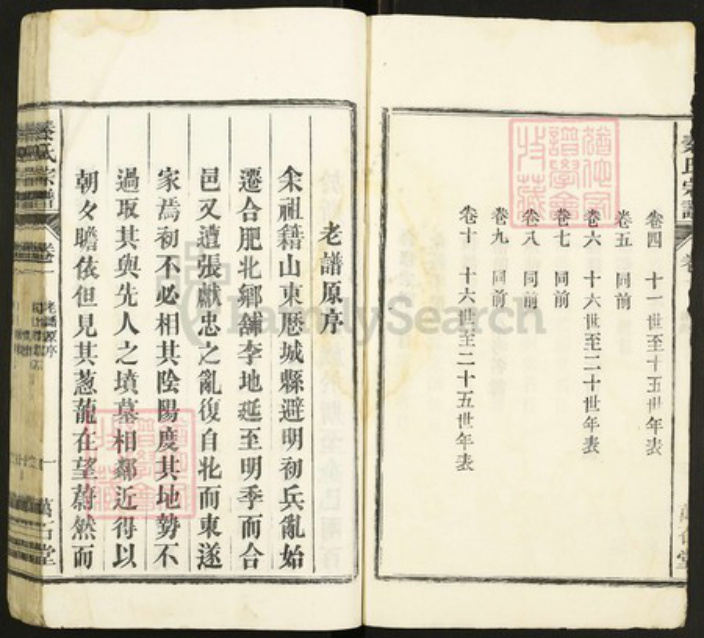 卷四 十一世至十五世年表
卷五 同前
卷六 十六世至二十世年表
卷七 同前
卷八 同前
卷九 同前
卷十 十六世至二十五世年表
老譜原序
余祖籍山東歷城縣避明初兵亂始
遷合肥北鄉舖李地延至明季而合
邑又遭張獻忠之亂復自北而東遂
家焉初不必相其陰陽度其地勢不
過取其與先人之墳墓相鄰近得以
朝夕瞻依但見其蔥蘢在望蔚然而
氏宗譜
卷一
老譜原序
一
萬石堂
FamilySearch